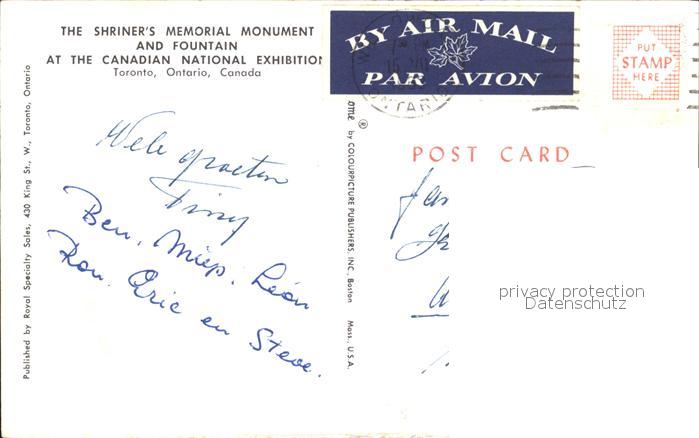 THE SHRINER'S MEMORIAL MONUMENT
AND FOUNTAIN
AT THE CANADIAN NATIONAL EXHIBITION
Toronto, Ontario, Canada
BY AIR MAIL
PAR AVION
ONTARIO
PUT
STAMP
HERE
POST CARD
Vele groeten
Tiny
Ben, Miep, Léon
Ron, Eric en Steve.
Published by Royal Specialty Sales, 430 King St., W., Toronto, Ontario
ome ® by COLOURPICTURE PUBLISHERS, INC., Boston Mass., U.S.A.
privacy protection
Datenschutz